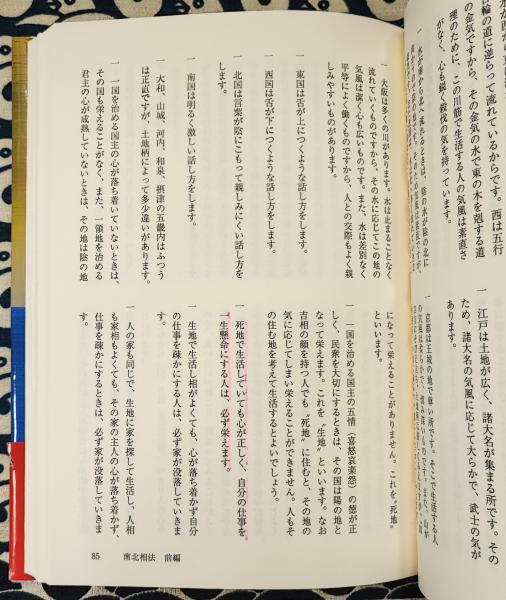 の金気ですから、その金気の水で東の木を剋する道
理のために、この川筋で生活する人の気風は素直さ
がなく、心も鋭く殺伐の気を持っています。
一 水が南から北へ流れるときは、陰の水が陰の北に
一 江戸は土地が広く、諸大名が集まる所です。その
ため、諸大名の気風に応じて大らかで、武士の気が
あります。
一 京都は王城の地で尊い所です。そこで生活する人
一 大阪は多くの川があります。水は止まることなく
流れていくものですから、その水に応じてこの地の
気風は潔く心も広いものです。また、水は差別なく
平等によく働くものですから、人との交際もよく親
しみやすいものがあります。
一 東国は舌が上につくような話し方をします。
一 西国は舌が下につくような話し方をします。
一 北国は言葉が陰にこもって親しみにくい話し方を
します。
一 南国は明るく激しい話し方をします。
一 大和、山城、河内、和泉、摂津の五畿内はふつう
は正直ですが、土地柄によって多少違いがあります。
一 一国を治める国主の心が落ち着いていないときは、
その国も栄えることがなく、また、一領地を治める
君主の心が成熟していないときは、その地は陰の地
になって栄えることがありません。これを〝死地〟
といいます。
一 一国を治める国主の五情（喜怒哀楽怨）の愬が正
しく、民衆を大切にするときは、その国は陽の地と
なって栄えます。これを〝生地〟といいます。なお
吉相の顔を持つ人でも〝死地〟に住むと、その地の
気に応じてしまい栄えることができません。人もそ
の住む地を考えて生活するとよいでしょう。
一 死地で生活していても心が正しく、自分の仕事を
一生懸命にする人は、必ず栄えます。
一 生地で生活し相がよくても、心が落ち着かず自分
の仕事を疎かにする人は、必ず家が没落していきま
す。
一 人の家も同じで、生地に家を探して生活し、人相
も家相もよくても、その家の主人の心が落ち着かず、
仕事を疎かにするときは、必ず家が没落していきま
す。
85 南北相法 前編